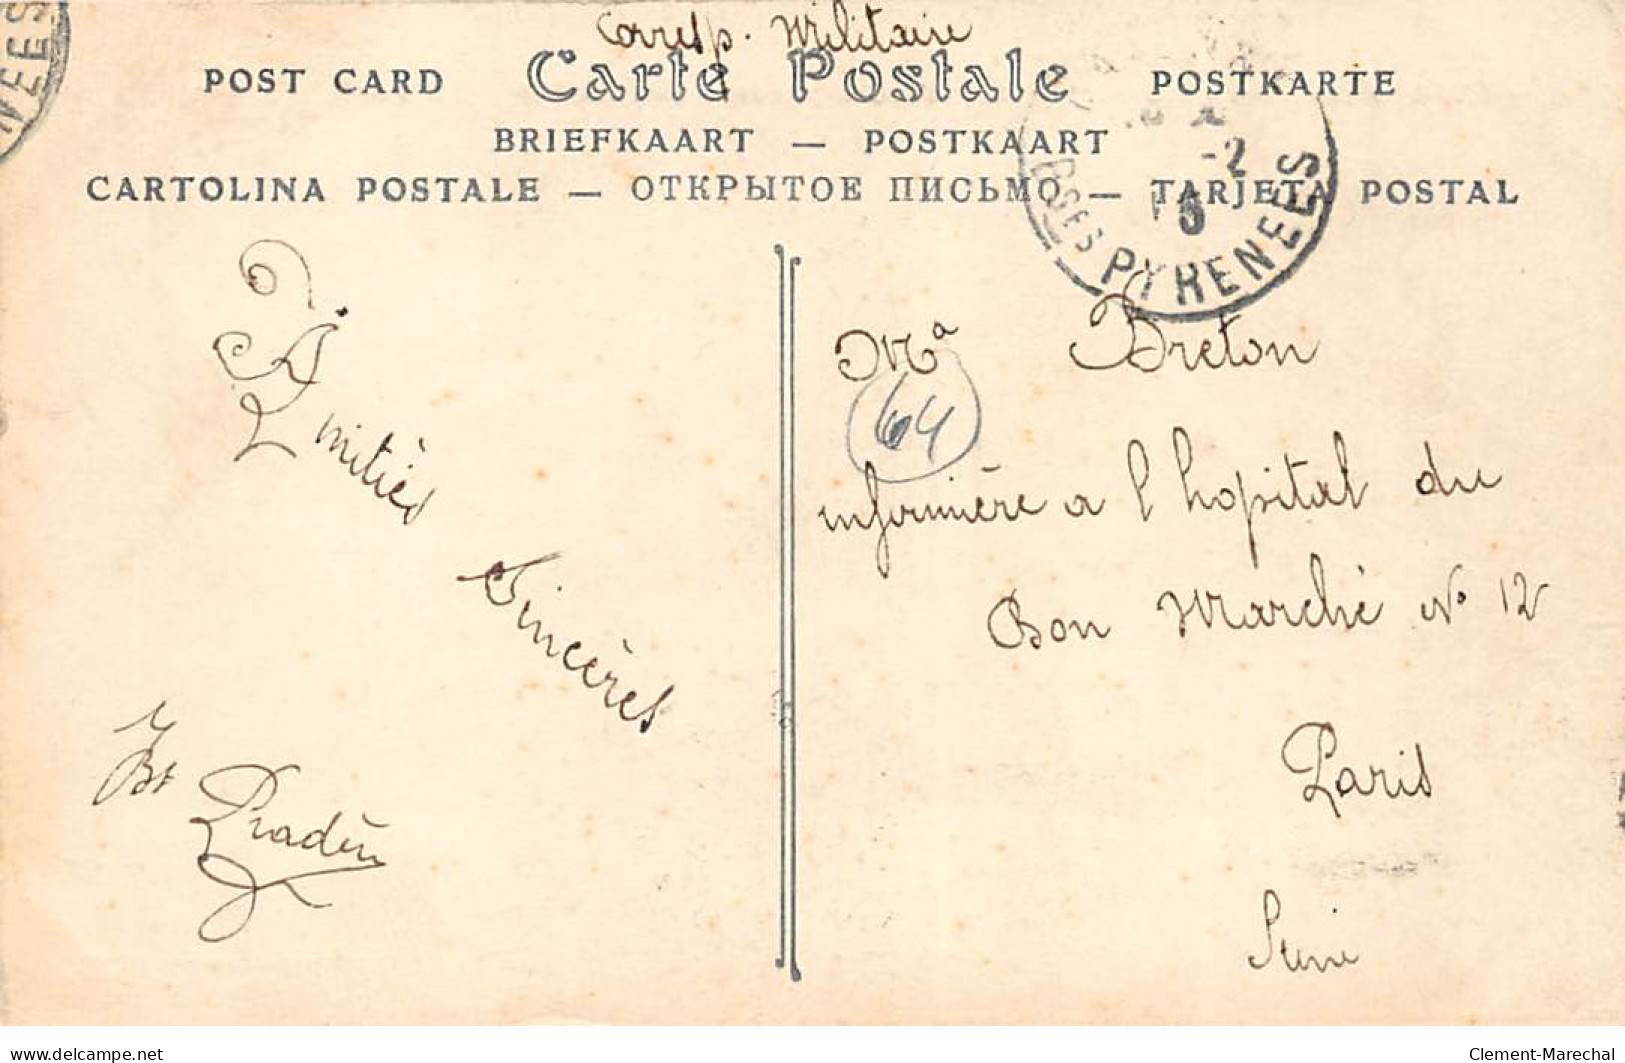 Corresp. Militaire
POST CARD Carte Postale POSTKARTE
BRIEFKAART — POSTKAART
CARTOLINA POSTALE — ОТКРЫТОЕ ПИСЬМО — TARJETA POSTAL
NEES
-2
BSES PYRENEES
Amitiés
Sincères
Bt Pradin
Ma Breton
64
infirmière a l hopital du
Bon Marché No 12
Paris
Seine
delcampe.net
Clement-Marechal